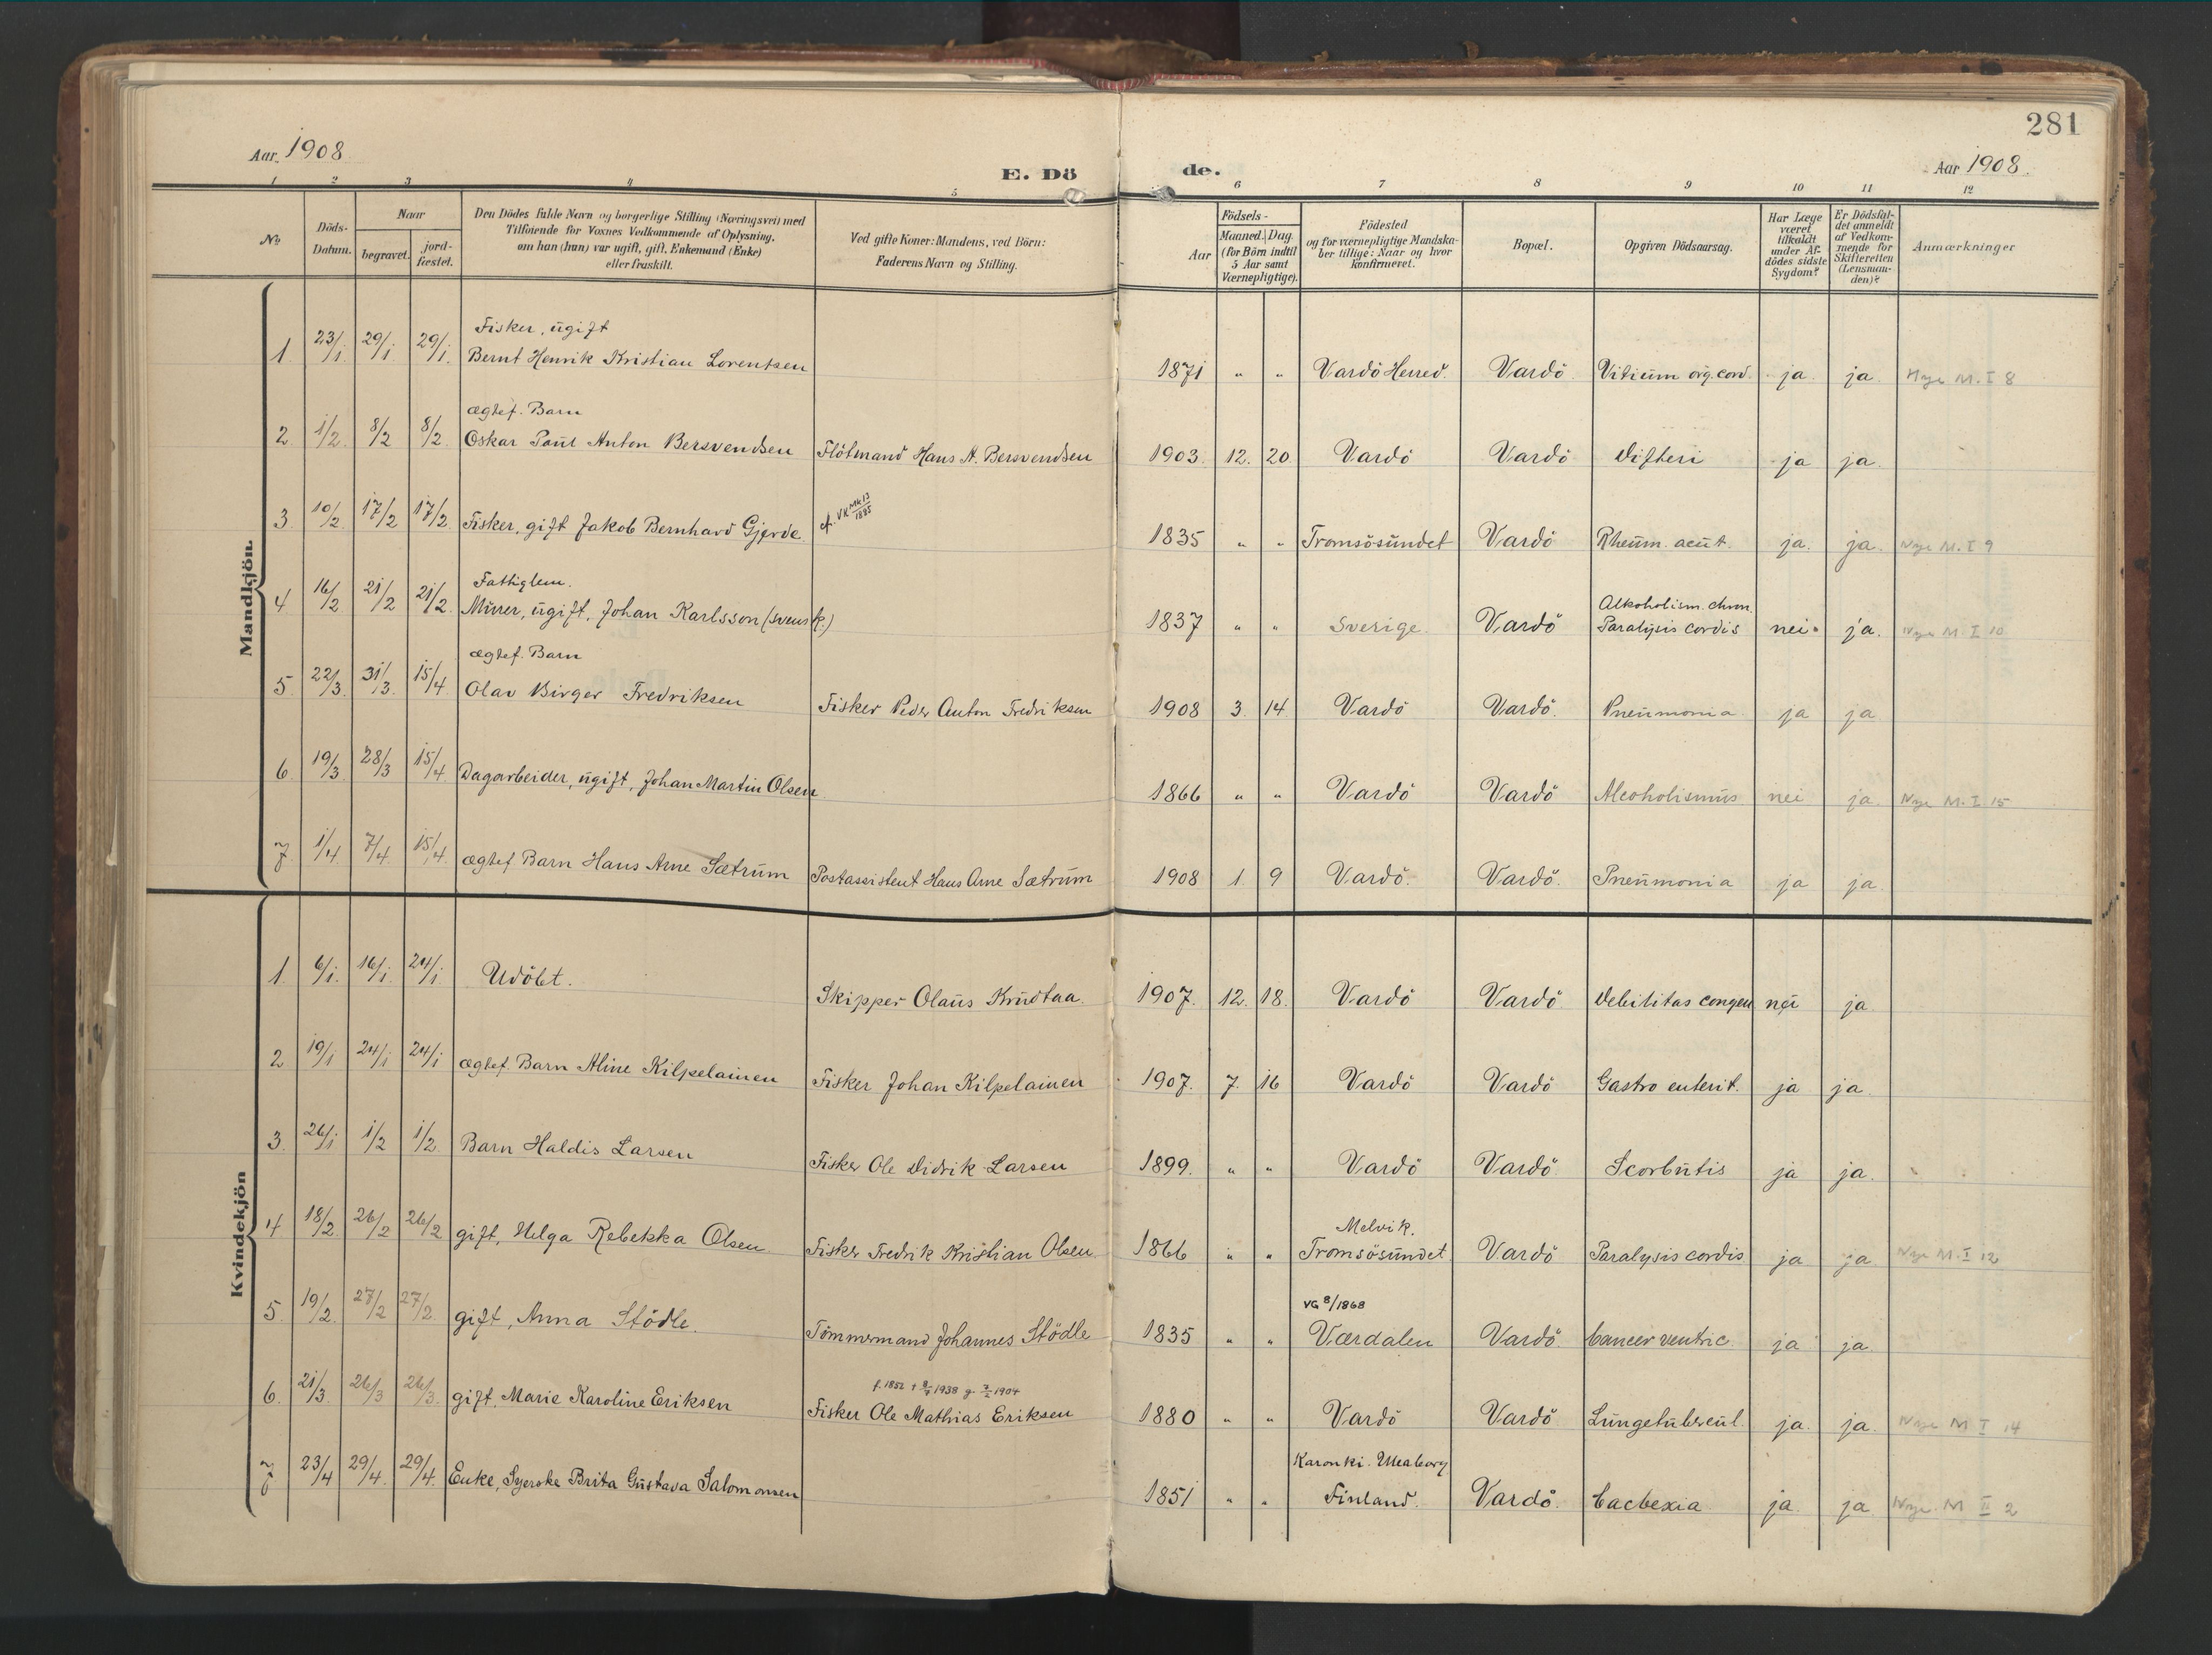 281
Aar. 1908
E. Döde.
Aar 1908.
1 2 3 4 5 6 7 8 9 10 11 12
No
Döds-Datum.
Naar
begravet.
jord-fæstet.
Den Dödes fulde Navn og borgerlige Stilling (Næringsvei) med
Tilföiende for Voxnes Vedkommende af Oplysning,
om han (hun) var ugift, gift, Enkemand (Enke)
eller fraskilt.
Ved gifte Koner: Mandens, ved Börn:
Faderens Navn og Stilling.
Födsels-
Aar
Maaned. Dag
(for Börn indtil
5 Aar samt
Værnepligtige).
Födested
og for værnepligtige Mandska-
ber tillige: Naar og hvor
konfirmeret.
Bopæl.
Opgiven Dödsaarsag.
Har Læge
været
tilkaldt
under Af-
dödes sidste
Sygdom?
Er Dödsfal-
det anmeldt
af Vedkom-
mende for
Skifteretten
(Lensman-
den)?
Anmærkninger
Mandkjön.
Fisker, ugift
1. 23/1. 29/1. 29/1. Bernt Henrik Kristian Lorentsen 1871 " " Vardö Herred. Vardö. Vitium org. cord. ja ja. M. I 8
ægtef. Barn
2. 1/2. 8/2 8/2. Oskar Paul Anton Bersvendsen Flötmand Hans A. Bersvendsen 1903. 12. 20 Vardö Vardö Difteri ja ja.
3. 10/2. 17/2 17/2. Fisker, gift Jakob Bernhard Gjerde. 1885 1835 " " Tromsösundet Vardö Rheum. acut. ja. ja. M. I 9
Fattiglem.
4. 16/2 21/2 21/2. Murer, ugift, Johan Karlsson (svensk.) 1837 " " Sverige. Vardö Alkoholism. chron.
Paralysis cordis nei. ja. M. I 10
ægtef. Barn
5. 22/3. 31/3. 15/4. Olav Birger Fredriksen Fisker Peder Anton Fredriksen 1908 3. 14 Vardö Vardö. Pneumonia. ja ja
6. 19/3. 28/3 15/4 Dagarbeider, ugift, Johan Martin Olsen 1866 " " Vardö Vardö Alcoholismus nei ja. M. I 15
7. 1/4. 7/4. 15/4. ægtef Barn Hans Arne Sætrum Postassistent Hans Arne Sætrum 1908 1 9 Vardö. Vardö. Pneumonia ja ja.
Kvindekjön
1. 6/1. 16/1. 24/1 Udöbt. Skipper Olaus Krudtaa. 1907. 12. 18. Vardö Vardö Debilitas congen nei ja.
2 19/1 24/1 24/1 ægtef. Barn Aline Kilpelainen Fisker Johan Kilpelainen 1907. 7. 16 Vardö Vardö Gastro enterit. ja ja.
3. 26/1 1/2 1/2. Barn Haldis Larsen Fisker Ole Didrik Larsen 1899. " " Vardö Vardö. Scorbutis ja ja.
4 18/2. 26/2 26/2 gift, Helga Rebekka Olsen Fisker Fredrik Kristian Olsen. 1866 " " Melvik.
Tromsösundet Vardö Paralysis cordis ja ja. M. I 12
5. 19/2. 27/2 27/2. gift, Anna Stödle. Tömmermand Johannes Stödle 1835 " " VG 8/1868
Værdalen Vardö. Cancer ventric. ja ja.
6. 21/3. 26/3 26/3. gift, Marie Karoline Eriksen f. 1852 1938 g. 1904
Fisker Ole Mathias Eriksen 1880 " " Vardö Vardö Lungetubercul. ja. ja. M I 14
7 23/4 29/4. 29/4. Enke, Syerske Brita Gustava Salomonsen 1851 " " Karonki. Uleaborg
Finland. Vardö. Cachexia. ja. ja M II 2